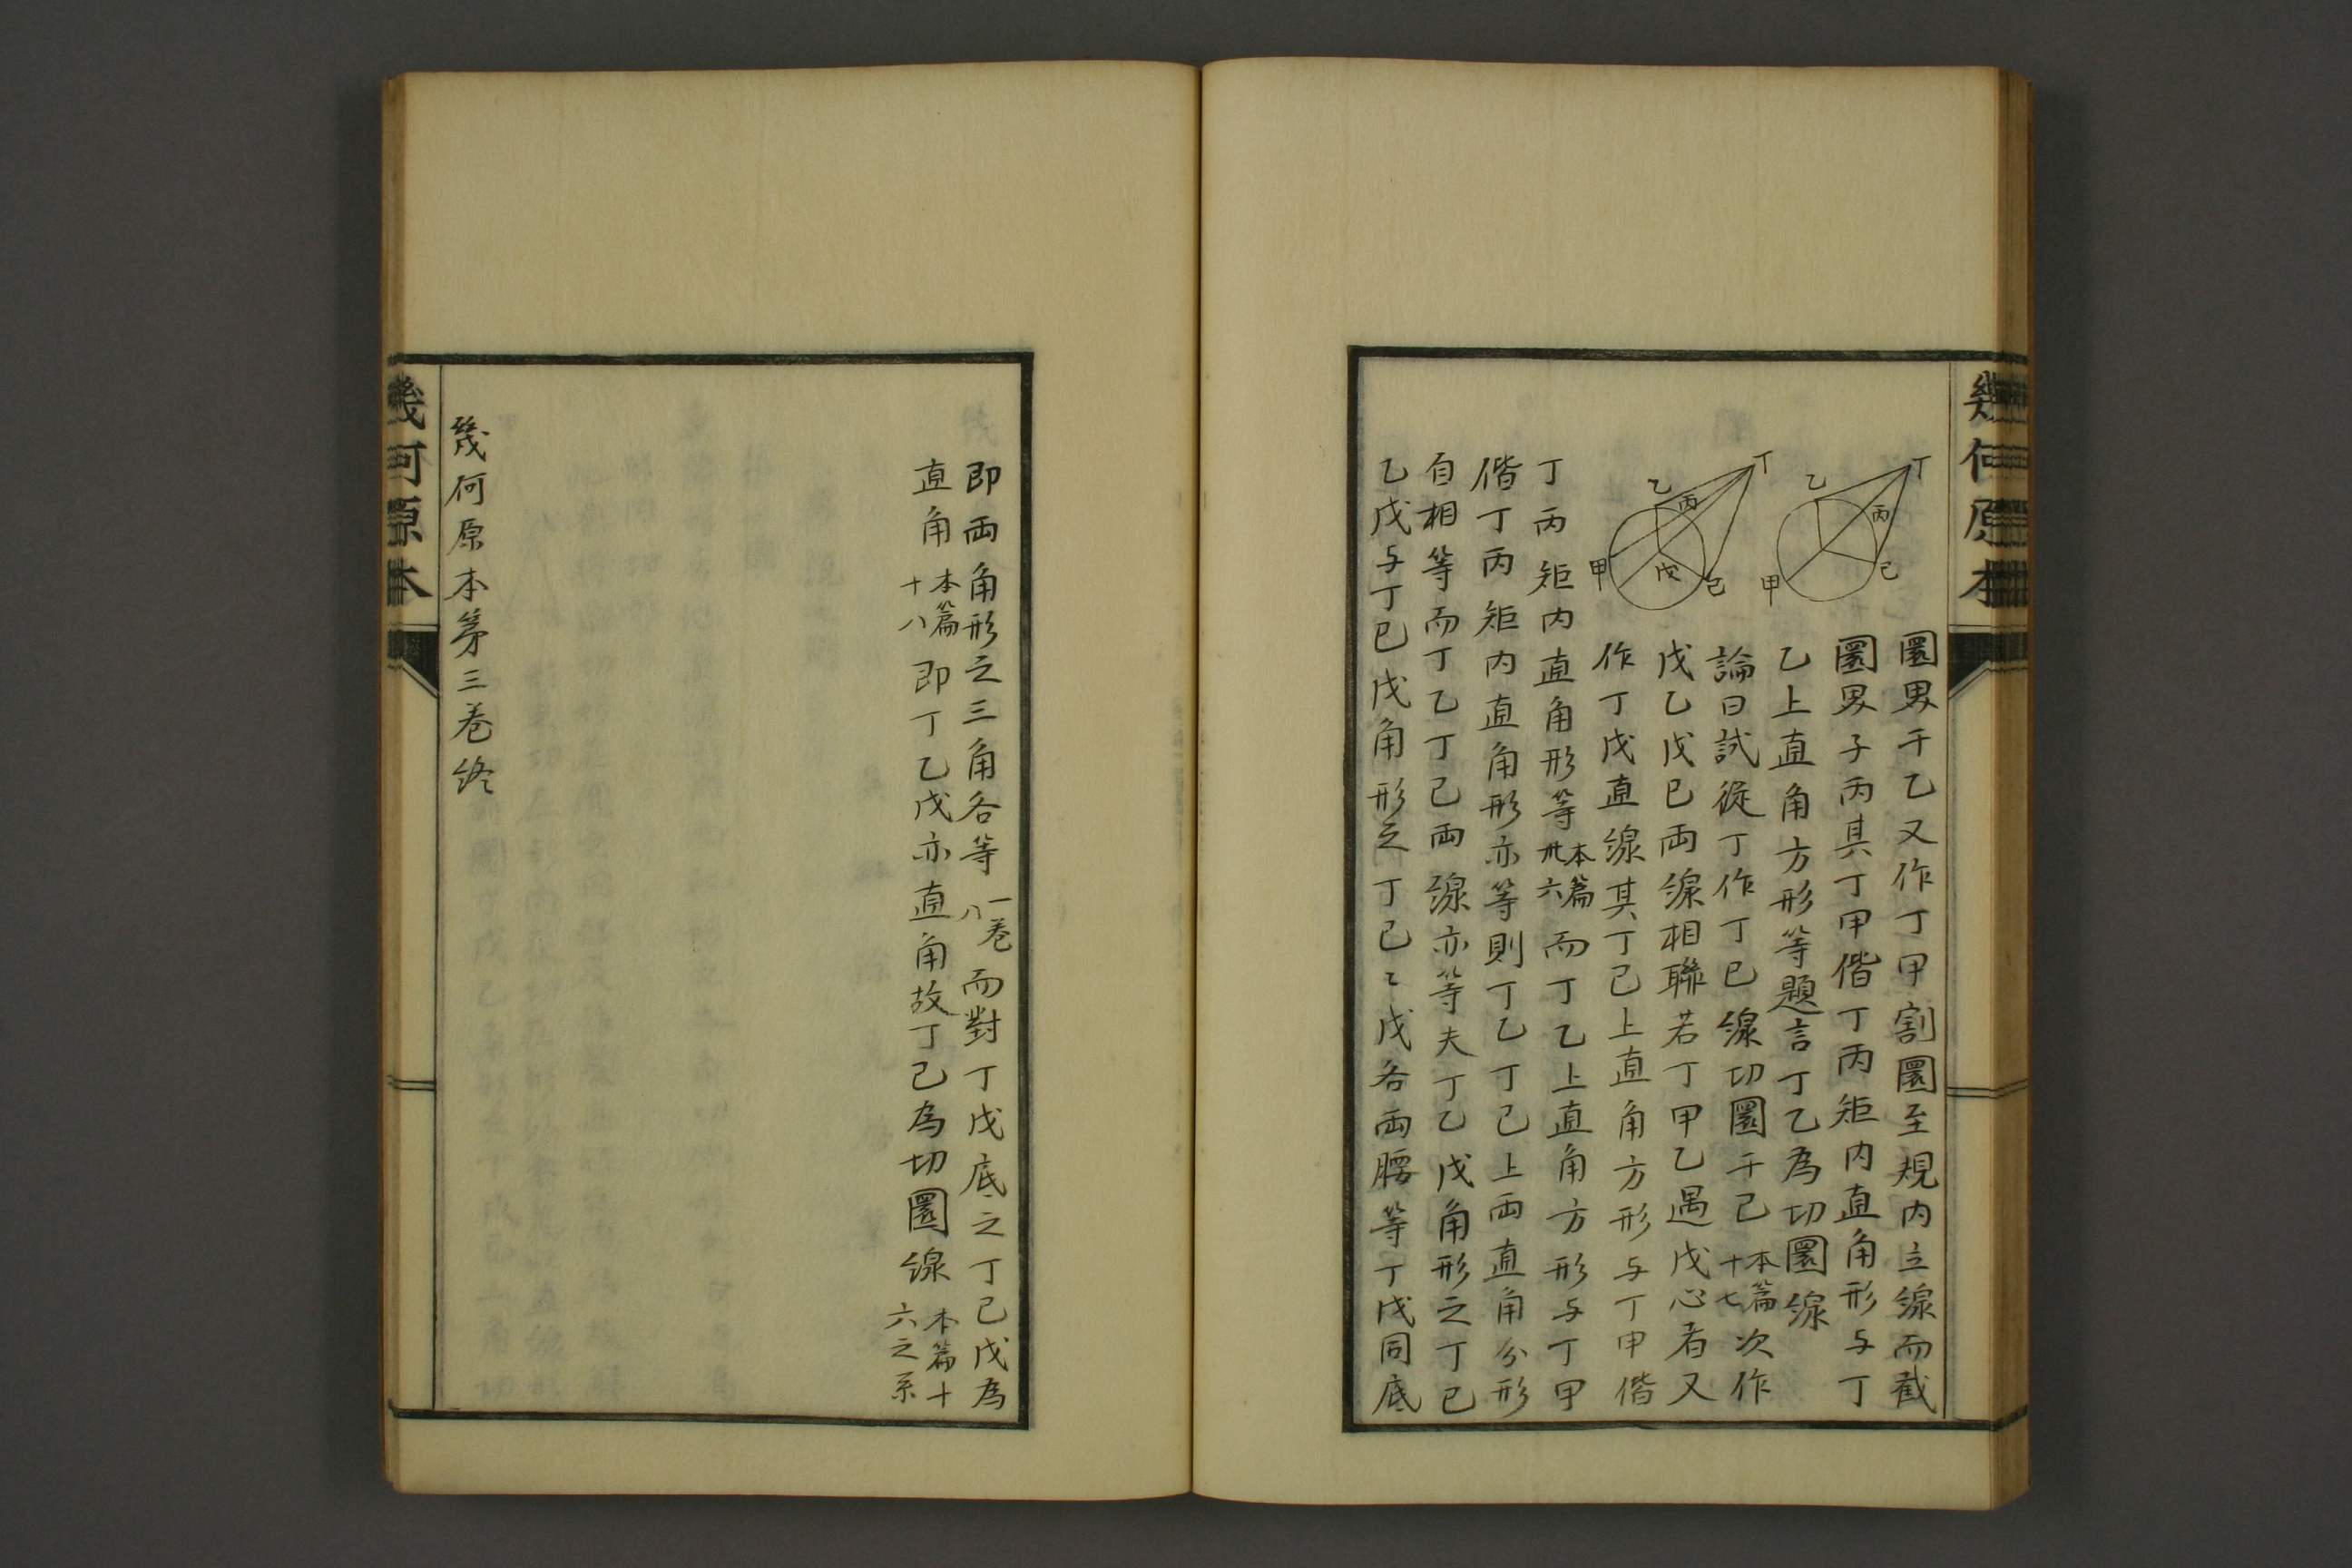 幾何原本
圜界于乙又作丁甲割圜至規内之線而截
圜界于丙其丁甲偕丁丙矩内直角形与丁
乙上直角方形等題言丁乙為切圜線
論曰試從丁作丁己線切圜于己本篇十七次作
戊乙戊己兩線相聯若丁甲乙遇戊心者又
作丁戊直線其丁己上直角方形与丁甲偕
丁丙矩内直角形等本篇卅六而丁乙上直角方形与丁甲
偕丁丙矩内直角形亦等則丁乙丁己上兩直角分形
自相等而丁乙丁己兩線亦等夫丁乙戊角形之丁己
乙戊与丁己戊角形之丁己乙戊各兩腰等丁戊同底
丁
乙
丙
己
甲
丁
乙
丙
戊
己
甲
即兩角形之三角各等一卷八而對丁戊底之丁己戊為
直角本篇十八即丁乙戊亦直角故丁己為切圜線本篇十六之系
幾何原本第三卷終
幾何原本